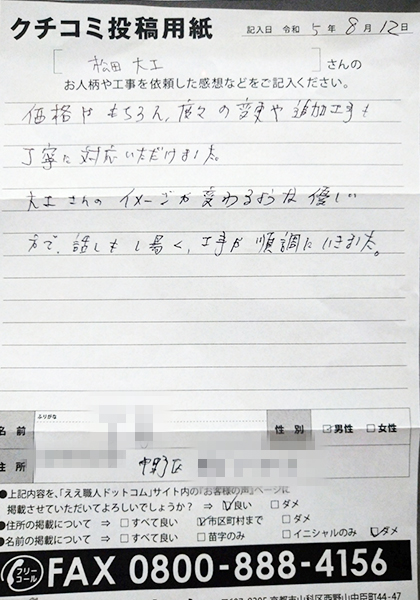 クチコミ投稿用紙
記入日 令和 5 年 8 月 12 日
[ 松田 大工 ] さんの
お人柄や工事を依頼した感想などをご記入ください。
価格はもちろん、度々の変更や追加工事も
丁寧に対応いただけました。
大工さんのイメージが変わるような優しい
方で、話しもし易く、工事が順調にいきました。
ふりがな
名前
性別 ☑男性 □女性
住所 中野区
●上記内容を、「ええ職人ドットコム」サイト内の「お客様の声」ページに
掲載させていただいてよろしいでしょうか? ⇒ ☑良い □ダメ
●住所の掲載について ⇒ □すべて良い ☑市区町村まで □ダメ
●名前の掲載について ⇒ □すべて良い □苗字のみ □イニシャルのみ ☑ダメ
フリーコール FAX 0800-888-4156
京都市山科区西野山中臣町44-47